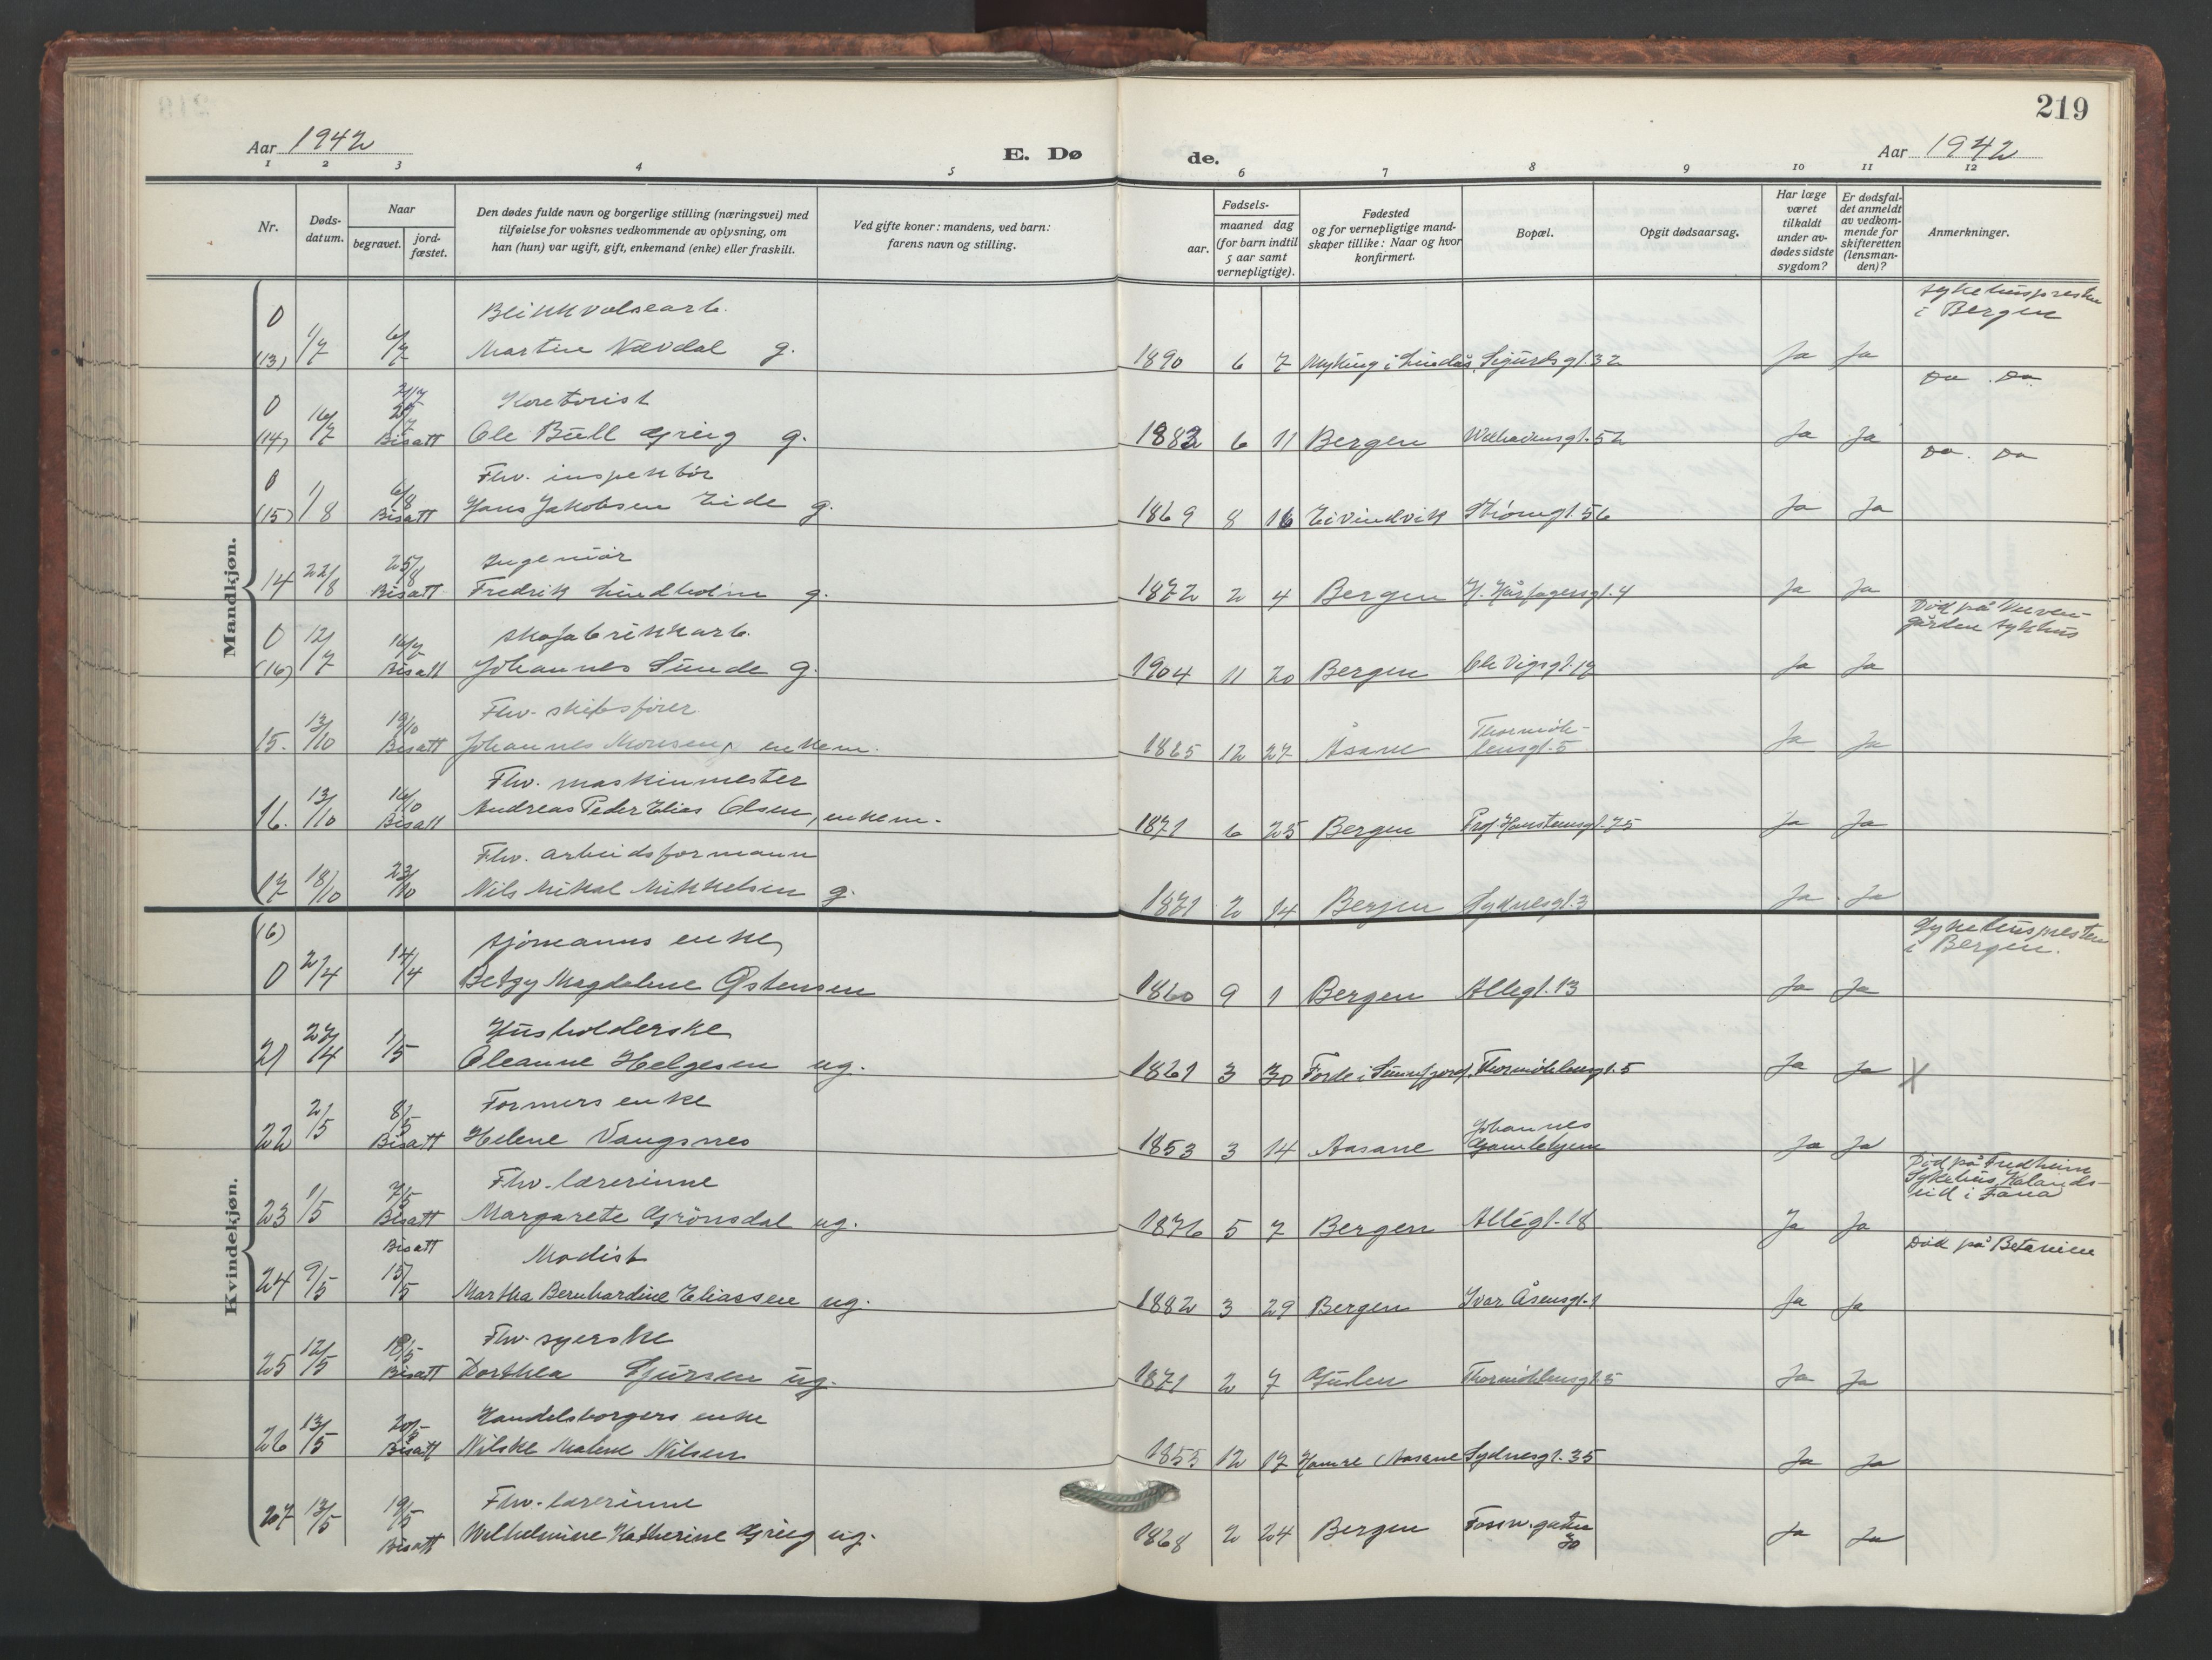 219
Aar 1942
E. Dø
de.
Aar 1942
1 2 3 4 5 6 7 8 9 10 11 12
Nr.
Døds-
datum.
Naar
begravet.
jord-
fæstet.
Den dødes fulde navn og borgerlige stilling (næringsvei) med
tilføielse for voksnes vedkommende av oplysning, om
han (hun) var ugift, gift, enkemand (enke) eller fraskilt.
Ved gifte koner: mandens, ved barn:
farens navn og stilling.
Fødsels-
aar.
maaned dag
(for barn indtil
5 aar samt
vernepligtige).
Fødested
og for vernepligtige mand-
skaper tillike: Naar og hvor
konfirmert.
Bopæl.
Opgit dødsaarsag.
Har læge
været
tilkaldt
under av-
dødes sidste
sygdom?
Er dødsfal-
det anmeldt
av vedkom-
mende for
skifteretten
(lensman-
den)?
Anmerkninger.
Mandkjøn.
0 Blikkvalsearb. sykehuspresten
i Bergen
(13) 1/7 6/7 Martin Nævdal g. 1890 6 7 Myking i Lindås Sigurdsgt. 32 Ja Ja
0 21/7 Koretorist Do Do
(14) 16/7 Bisatt Ole Bull Grieg g. 1882 6 11 Bergen Welhavensgt. 52 Ja Ja
0 Fhv. inspektør Do. Do
(15) 1/8 6/8 Bisatt Hans Jakobsen Eide g. 1869 8 16 Eivindvik Strømgt. 56 Ja Ja
Ingeniør
14 22/8 25/8 Bisatt Fredrik Lindholm g. 1872 2 4 Bergen H. Hårfagersgt. 4 Ja Ja
0 skofabrikkarb. Død på Neven-
gården sykhus
(16) 12/7 16/7 Bisatt Johannes Sunde g. 1904 11 20 Bergen Ole Vigsgt. 17 Ja Ja
Fhv. skibsfører
15. 13/10 19/10 Bisatt Johannes Monsen, enkem. 1865 12 27 Åsane Thormøh-
lensgt. 5 Ja Ja
Fhv. maskinmester
16. 13/10 16/10 Bisatt Andreas Peder Elias Olsen, enkem. 1871 6 25 Bergen Prof. Hansteensgt. 75 Ja Ja
Fhv. arbeidsformann
17 18/10 23/10 Nils Mikal Mikkelsen g. 1871 2 14 Bergen Sydnesgt. 3 Ja Ja
Kvindekjøn.
(6) Sjømanns enke Sykehuspresten
i Bergen.
0 2/4 14/4 Betzy Magdalene Østensen 1860 9 1 Bergen Allegt. 13 Ja Ja
Husholderske
21 27/4 1/5 Oleanne Helgesen ug. 1861 3 30 Førde i Sunnfjord Thormøhlensgt. 5 Ja Ja X
Formers enke
22 2/5 8/5 Bisatt Helene Vangsnes 1853 3 14 Aasane Johannes
Gamlehjem Ja Ja
Fhv. lærerinne Død på Fredheim
Sykehus, Kalands-
eid i Fana
23 1/5 7/5 Bisatt Margarete Grönsdal ug. 1876 5 7 Bergen Allégt. 18 Ja Ja
Bisatt Modist Død på Betanien
24 9/5 15/5 Martha Bernhardine Eliassen ug. 1882 3 29 Bergen Ivar Åsensgt. 1 Ja Ja
Fhv. syerske
25 12/5 18/5 Bisatt Dorthea Sjursen ug. 1871 2 7 Gulen Thormøhlensgt. 5 Ja Ja
Handelsborgers enke
26 13/5 20/5 Bisatt Nilske Malene Nilsen 1855 12 17 Hamre (Aasane Sydnesgt. 35 Ja Ja
Fhv. lærerinne
27 13/5 19/5 Bisatt Wilhelmine Katherine Grieg ug. 1868 2 24 Bergen Fossw. gaten
30 Ja Ja